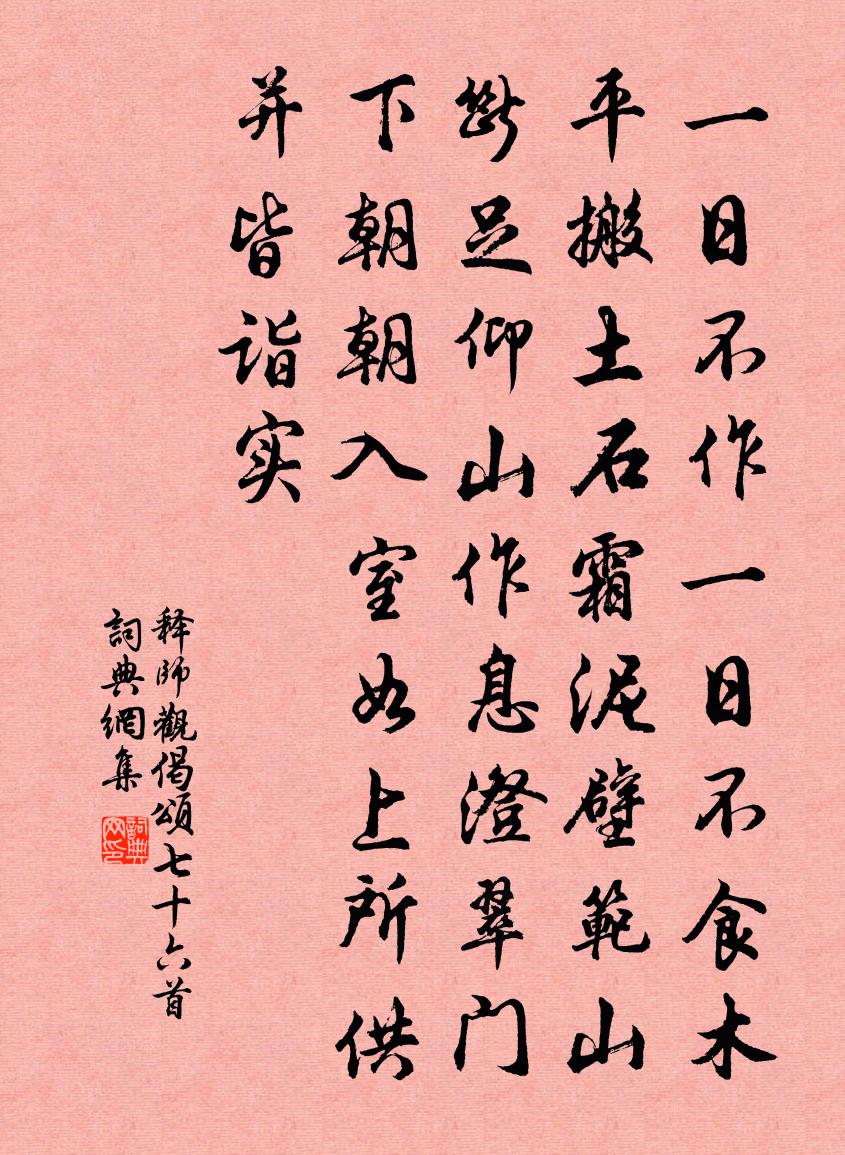 一日不作一日不食木
平搬土石霜泥壁範山
斷足仰山作息澄翠门
下朝朝入室如上所供
并皆诣实
释師觀偈頌七十六首
詞典網集
詞典网印